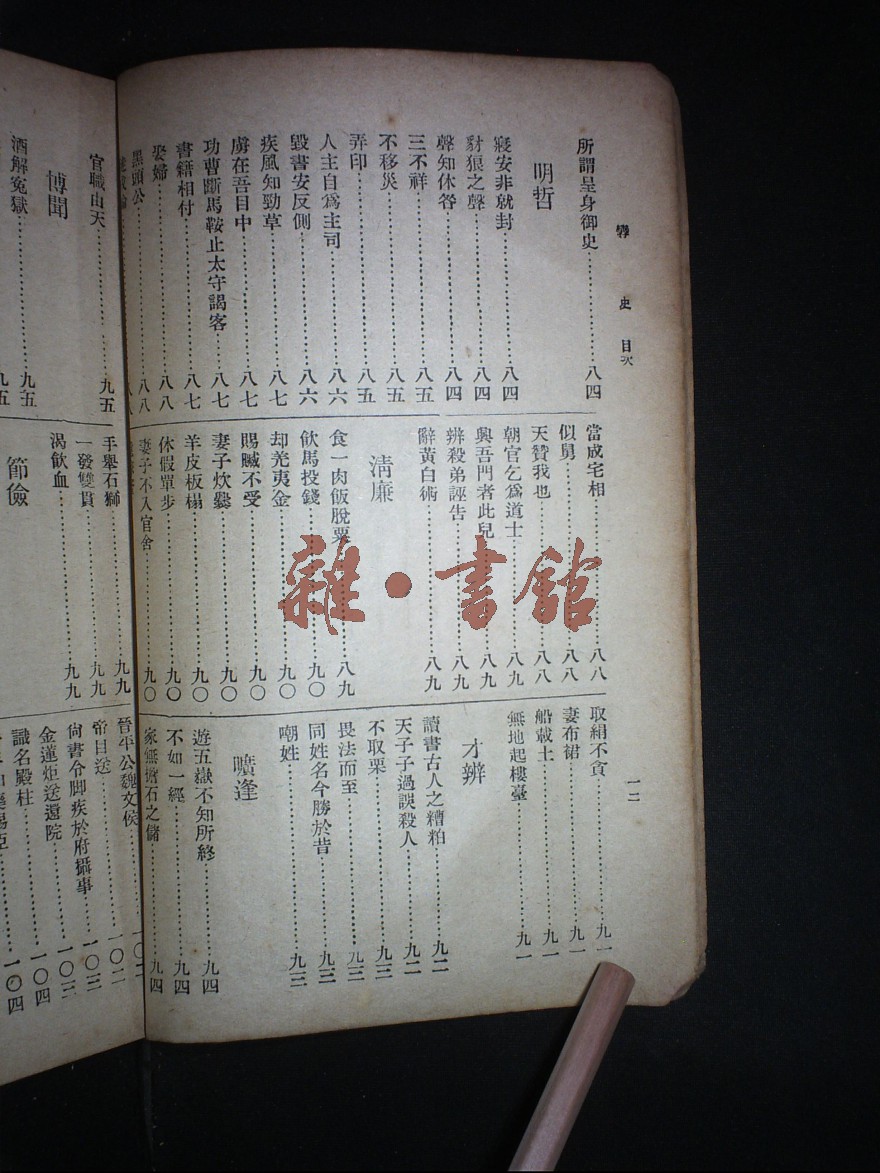 史 目次
一二
所謂皇身御史……八四
明哲
寢安非就封……八四
豺狼之聲……八四
聲知休咎……八四
三不祥……八五
不移災……八五
弄印……八五
人主自爲主司……八六
毀書安反側……八六
疾風知勁草……八七
虜在吾目中……八七
功曹斷馬鞍止太守謁客……八七
書籍相付……八七
娶婦……八八
黑頭公……八八
當成宅相……八八
似舅……八八
天贊我也……八八
朝官乞爲道士……八九
興吾門者此兒……八九
辨殺弟誣告……八九
辭黃白術……八九
淸廉
食一肉飯脫粟……八九
飮馬投錢……九〇
却羌夷金……九〇
賜贓不受……九〇
妻子炊爨……九〇
羊皮板榻……九〇
休假單步……九〇
妻子不入官舍……九〇
取絹不貪……九一
妻布裙……九一
船載土……九一
無地起樓臺……九一
才辨
讀書古人之糟粕……九二
天子子過誤殺人……九二
不取栗……九三
畏法而至……九三
同姓名今勝於昔……九三
嘲姓……九三
曠逢
遊五嶽不知所終……九四
不如一經……九四
家無擔石之儲……九四
官職由天……九五
博聞
酒解寃獄……九五
九五
手舉石獅……九九
一發雙貫……九九
渴飮血……九九
節儉
晉平公魏文侯……
帝日送……一〇二
尙書令脚疾於府攝事……一〇三
金蓮炬送還院……一〇三
識名殿柱……一〇四
一〇四
雜·書館